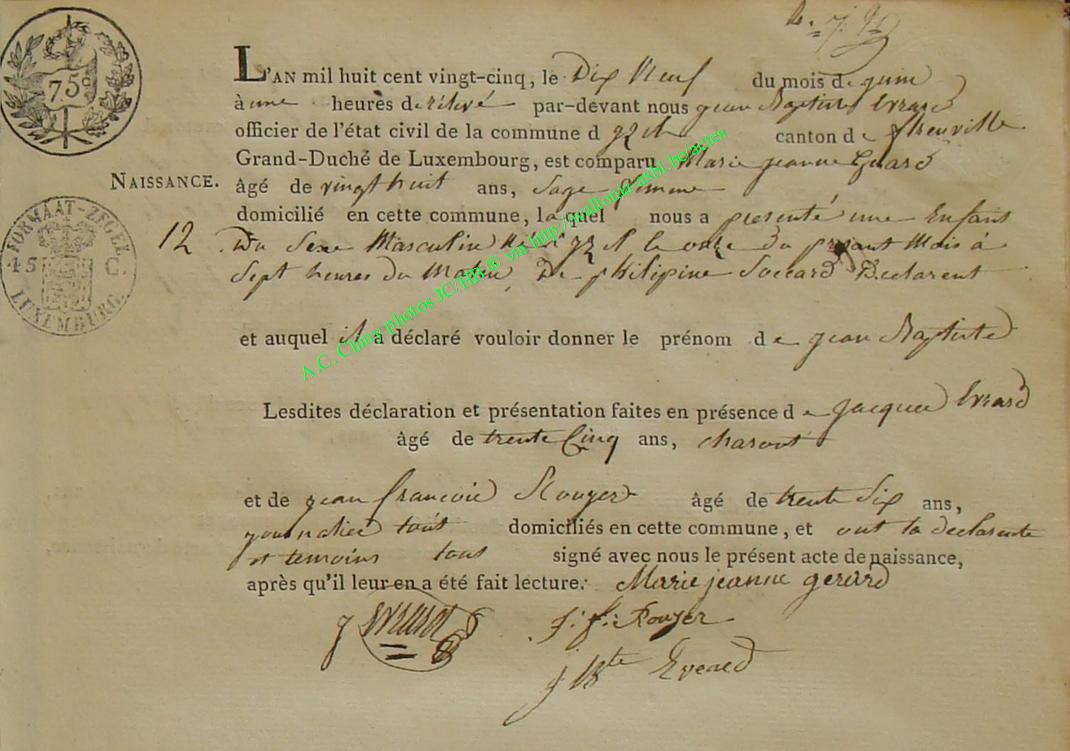 75 c
L'AN mil huit cent vingt-cinq, le Dix Neuf du mois de juin
à une heures de rélevé par-devant nous jean Baptiste Evrard
officier de l'état civil de la commune d canton de
Grand-Duché de Luxembourg, est comparu Marie jeanne Gerard
NAISSANCE.
âgé de vingt huit ans, Sage femme
domicilié en cette commune, laquel nous a présenté une Enfant
12 Du Sexe Masculin Né le onze du présant Mois à
Sept heures du Matin, De philipine Soccard Declarent
FORMAAT-ZEGEL
45 C.
LUXEMBURG.
et auquel il a déclaré vouloir donner le prénom de jean Baptiste
A.C. Chiny photos JC/HFC© via http://wallonia.asbl.be/actes
Lesdites déclaration et présentation faites en présence de jacques Evrard
âgé de trente Cinq ans,
et de jean francois Rouyer âgé de trente Six ans,
journalier tous domiciliés en cette commune, et ont la declarente
et temoins tous signé avec nous le présent acte de naissance,
après qu'il leur en a été fait lecture. Marie jeanne gerard
j Evrard j: f: Rouyer
j Bte Evrard